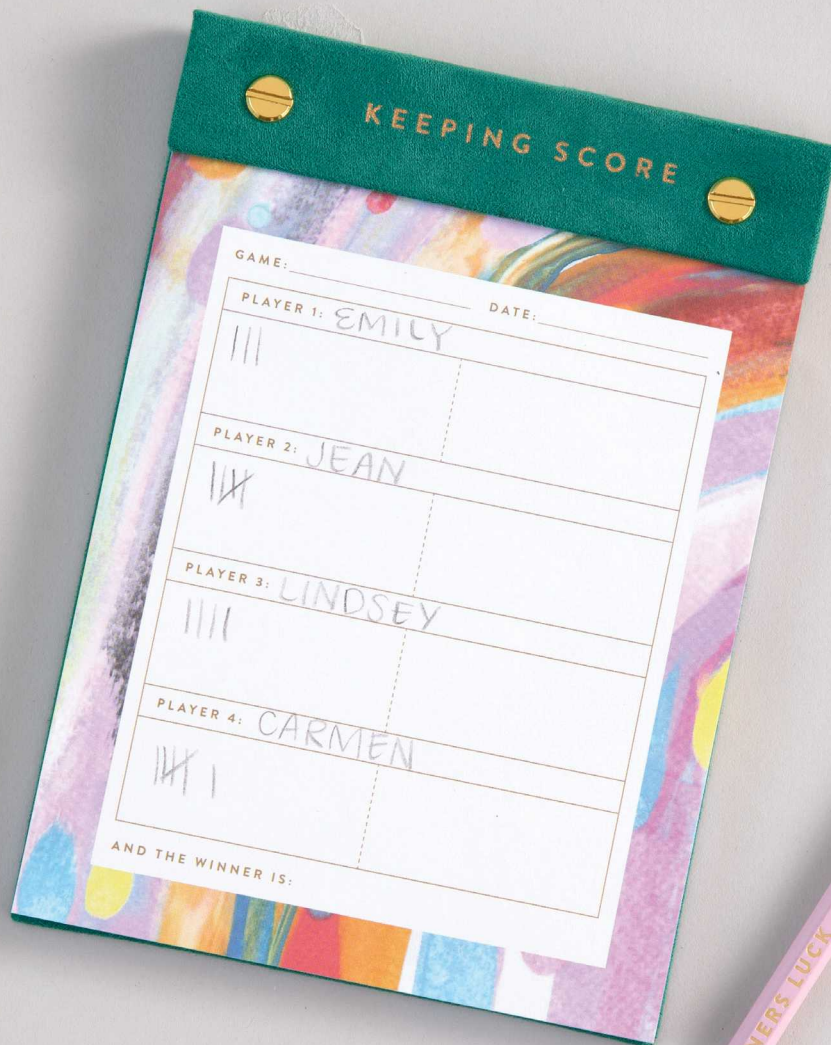 KEEPING SCORE
GAME: DATE:
PLAYER 1: EMILY
PLAYER 2: JEAN
PLAYER 3: LINDSEY
PLAYER 4: CARMEN
AND THE WINNER IS:
LUCK